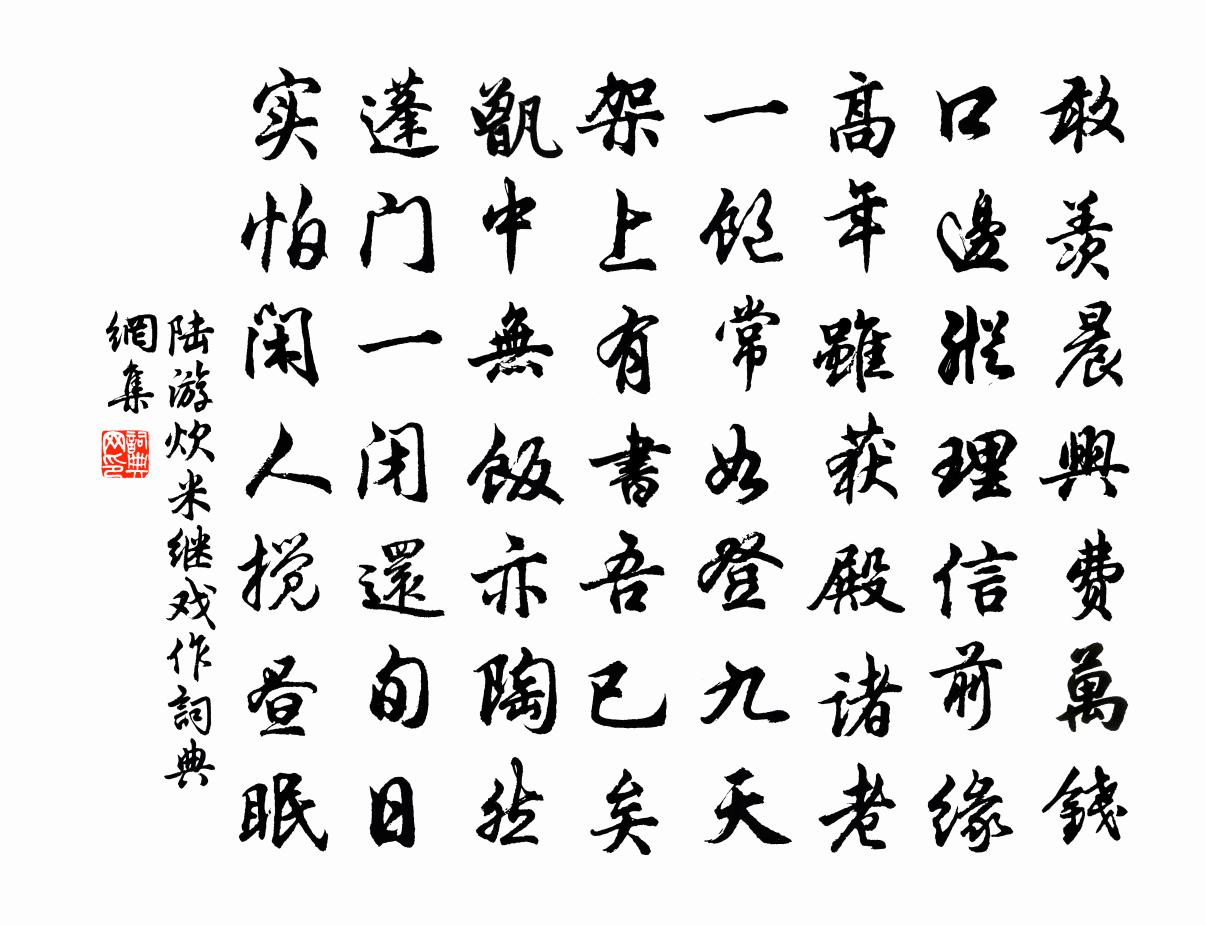 敢羨晨興費萬錢
口邊縱理信前緣
高年雖获殿诸老
一飽常如登九天
架上有書吾已矣
甑中無飯亦陶然
蓬门一闭還旬日
实怕闲人搅昼眠
陆游炊米继戏作詞典
網集
詞典
网印